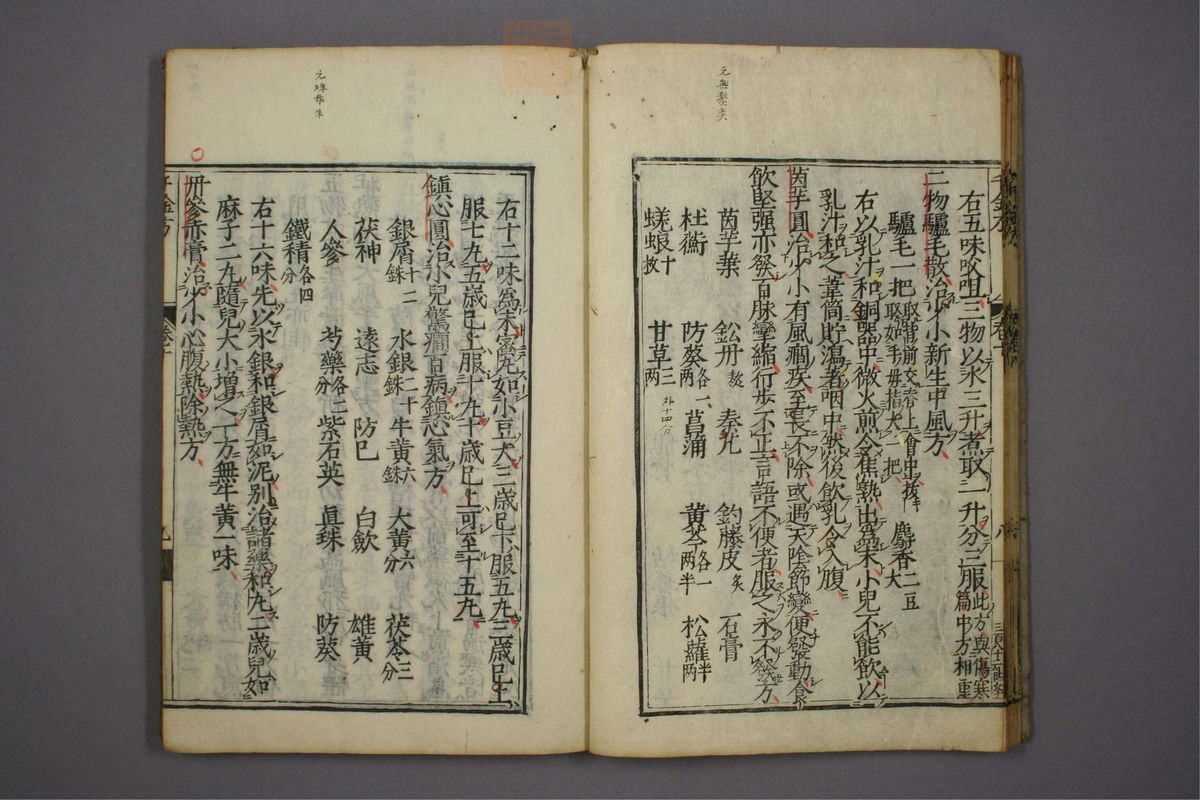 元無皴炙
右五味㕮咀三物以水三升煮取一升分三服此方與傷寒
篇中方相重
二物驢毛散治少小新生中風方
驢毛一把取背前交脊上會中拔
取如手毋指大一把
麝香二豆
大
右以乳汁和銅器中微火煎令焦熟出爲末小兒不能飲以
乳汁和之葦筒貯瀉著咽中然後飲乳令入腹
茵芋圓治少小有風癇疾至長不除或遇天陰節變便發動食
飲堅强亦發百脉攣縮行步不正言語不便者服之永不發方
茵芋葉 鈆丹 秦艽 釣藤皮炙 石膏
杜蘅 防葵各一
兩 菖蒲 黄芩各一
兩半 松蘿半
兩
蜣蜋十
枚 甘草三
兩
千金方
元珠作朱
右十二味爲末蜜丸如小豆大三歲已下服五丸三歲已上
服七丸五歲已上服十丸十歲已上可至十五丸
鎮心圓治小兒驚癇百病鎮心氣方
銀屑十二
銖 水銀二十
銖 牛黄六
銖 大黄六
分 茯苓三
分
茯神 遠志 防巳 白歛 雄黄
人參 芍藥各二
分 紫石英 眞珠 防葵
鐵精各四
分
右十六味先以水銀和銀屑如泥別治諸藥和丸三歲兒如
麻子二丸隨兒大小增之一方無牛黄一味
丹參赤膏治少小心腹熱除熱方